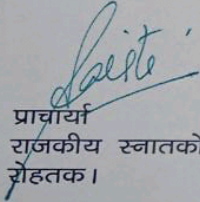 प्राचार्या
राजकीय स्नातको
रोहतक।